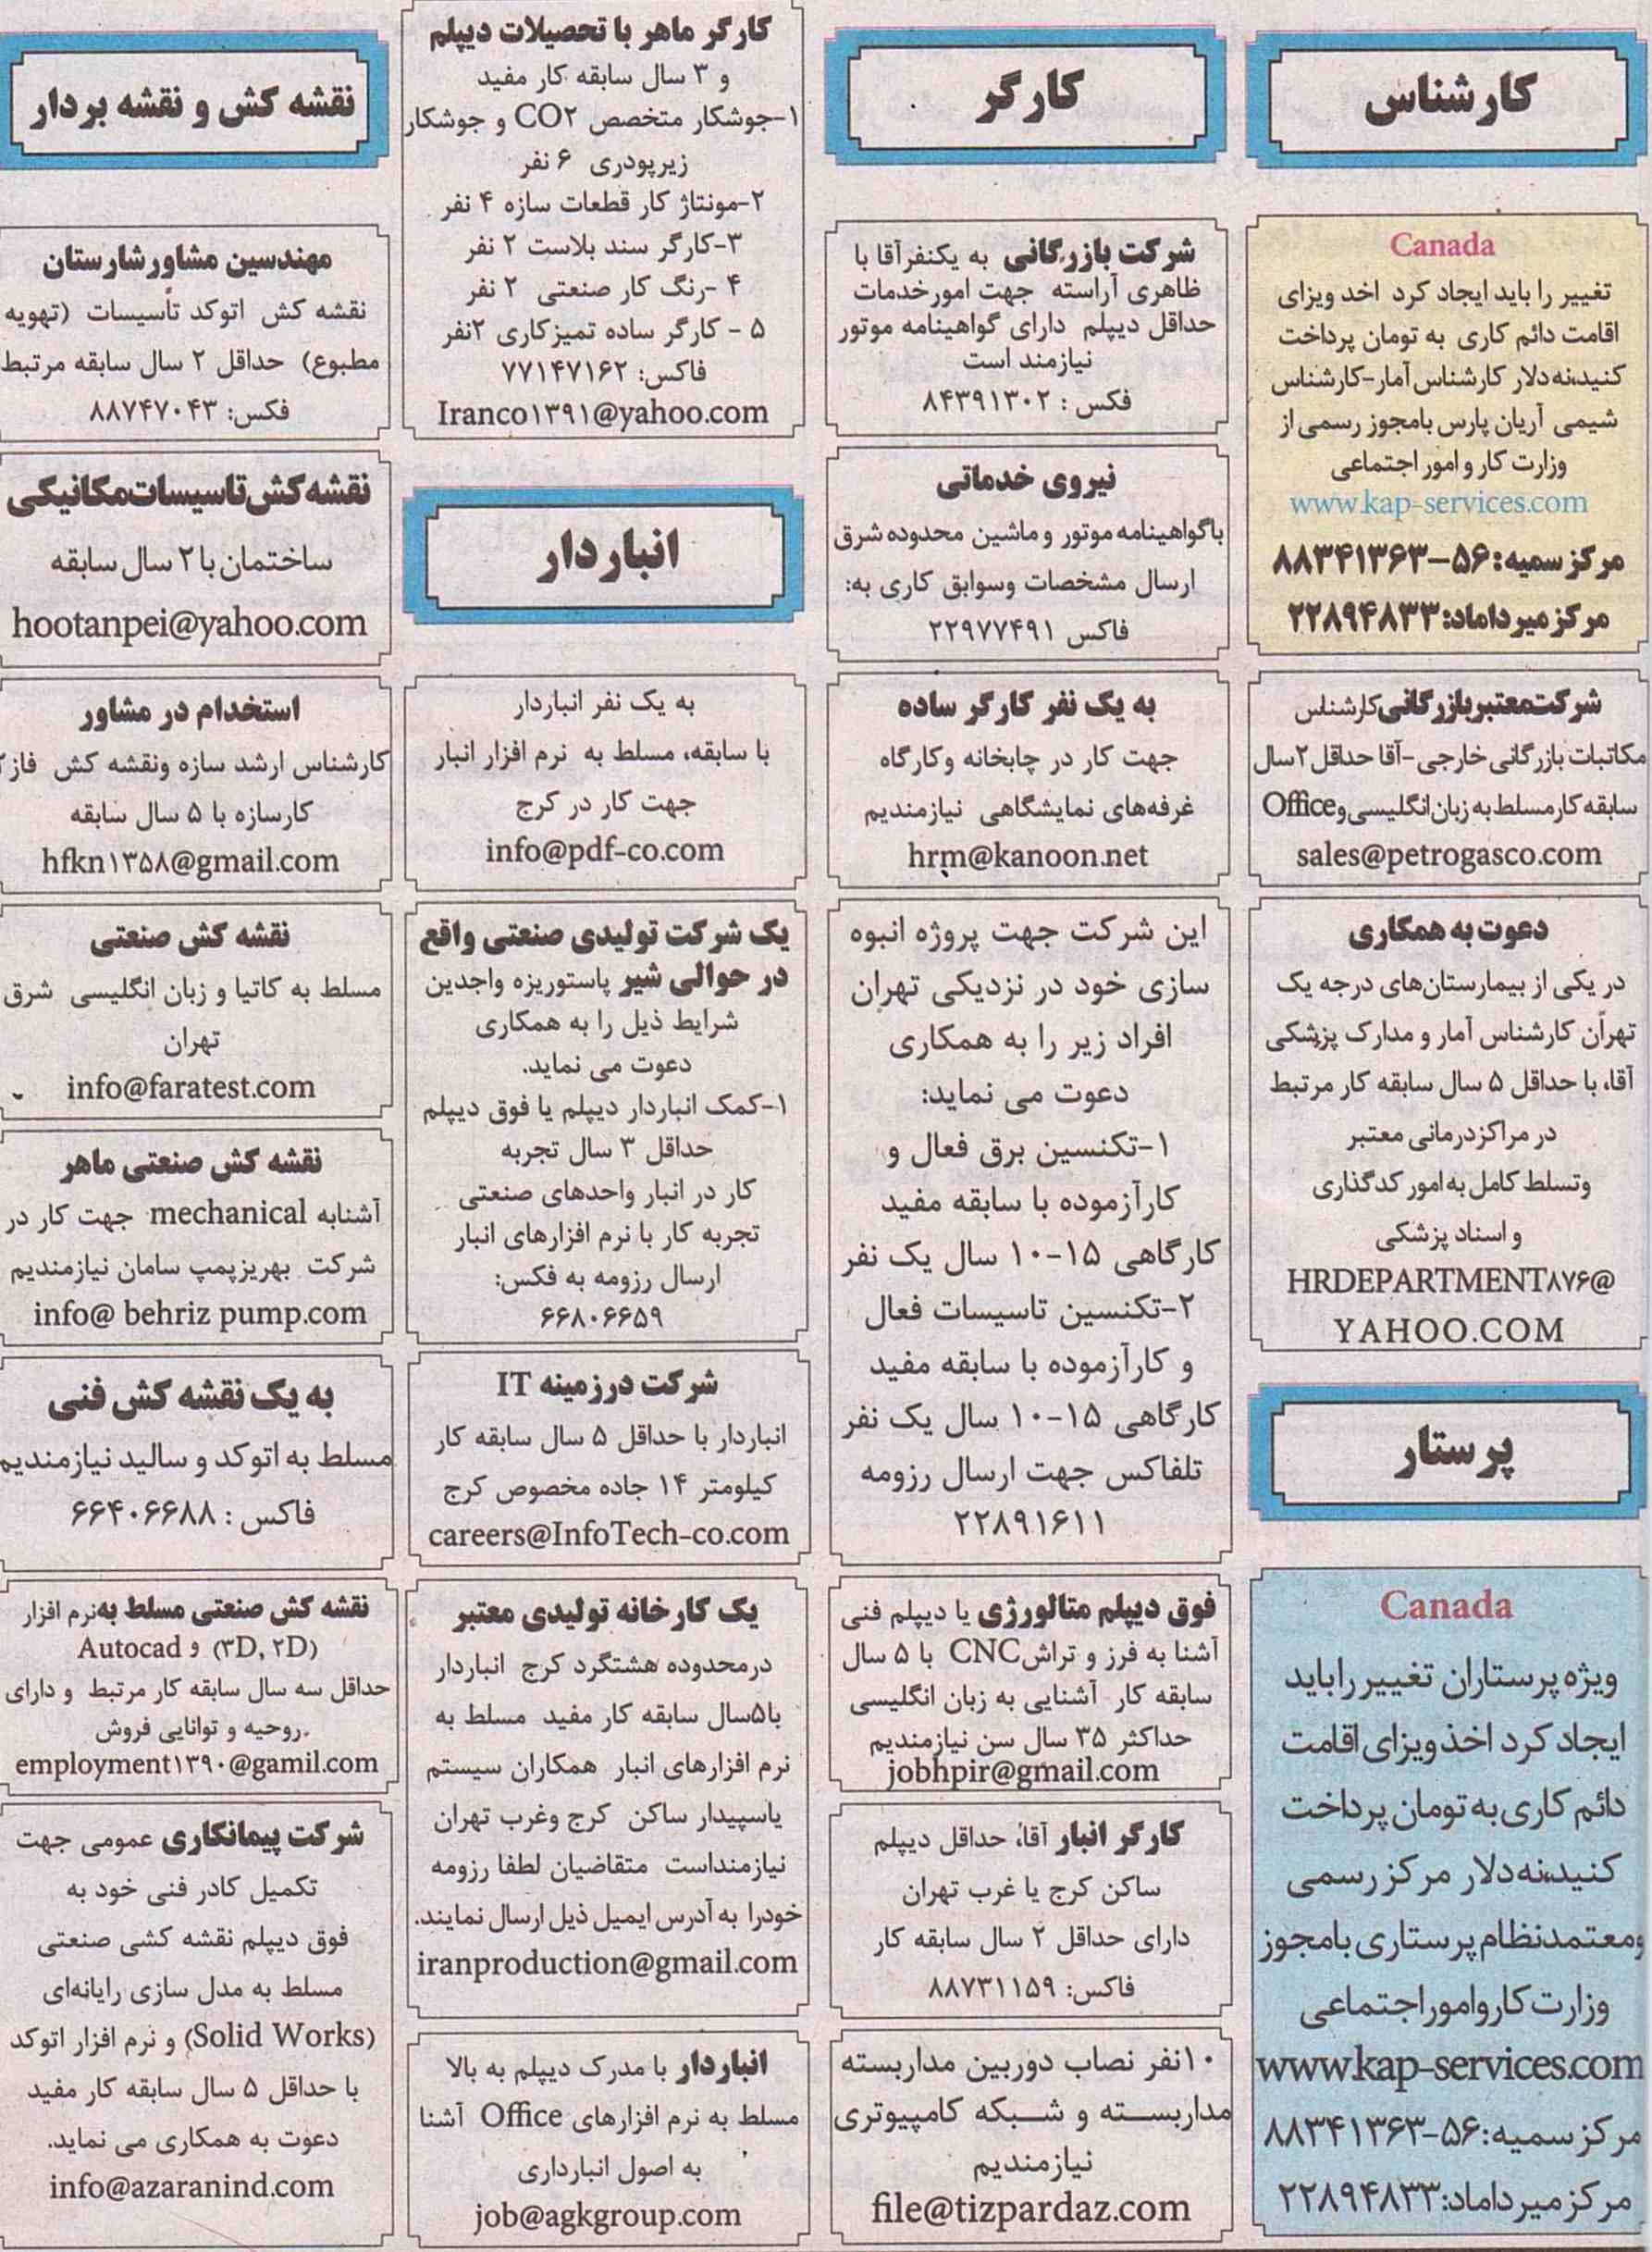 کارشناس
Canada
تغییر را باید ایجاد کرد اخد ویزای
اقامت دائم کاری به تومان پرداخت
کنید،نه دلار کارشناس آمار-کارشناس
شیمی آریان پارس بامجوز رسمی از
وزارت کار و امور اجتماعی
www.kap-services.com
مرکز سمیه: ۵۶-۸۸۳۴۱۳۶۳
مرکز میرداماد: ۲۲۸۹۴۸۳۳
شرکت معتبر بازرگانی کارشناس
مکاتبات بازرگانی خارجی-آقا حداقل ۲سال
سابقه کار مسلط به زبان انگلیسی و Office
sales@petrogasco.com
دعوت به همکاری
در یکی از بیمارستان‌های درجه یک
تهران کارشناس آمار و مدارک پزشکی
آقا، با حداقل ۵ سال سابقه کار مرتبط
در مراکزدرمانی معتبر
وتسلط کامل به امور کدگذاری
و اسناد پزشکی
HRDEPARTMENT۸۷۶@
YAHOO.COM
پرستار
Canada
ویژه پرستاران تغییر را باید
ایجاد کرد اخذ ویزای اقامت
دائم کاری به تومان پرداخت
کنید،نه دلار مرکز رسمی
ومعتمدنظام پرستاری بامجوز
وزارت کار وامور اجتماعی
www.kap-services.com
مرکز سمیه: ۵۶-۸۸۳۴۱۳۶۳
مرکز میرداماد: ۲۲۸۹۴۸۳۳
کارگر
شرکت بازرگانی به یکنفرآقا با
ظاهری آراسته جهت امورخدمات
حداقل دیپلم دارای گواهینامه موتور
نیازمند است
فکس : ۸۴۳۹۱۳۰۲
نیروی خدماتی
باگواهینامه موتور و ماشین محدوده شرق
ارسال مشخصات وسوابق کاری به:
فاکس ۲۲۹۷۷۴۹۱
به یک نفر کارگر ساده
جهت کار در چاپخانه وکارگاه
غرفه‌های نمایشگاهی نیازمندیم
hrm@kanoon.net
این شرکت جهت پروژه انبوه
سازی خود در نزدیکی تهران
افراد زیر را به همکاری
دعوت می نماید:
۱-تکنسین برق فعال و
کارآزموده با سابقه مفید
کارگاهی ۱۵-۱۰ سال یک نفر
۲-تکنسین تاسیسات فعال
و کارآزموده با سابقه مفید
کارگاهی ۱۵-۱۰ سال یک نفر
تلفاکس جهت ارسال رزومه
۲۲۸۹۱۶۱۱
فوق دیپلم متالورژی یا دیپلم فنی
آشنا به فرز و تراش CNC با ۵ سال
سابقه کار آشنایی به زبان انگلیسی
حداکثر ۳۵ سال سن نیازمندیم
jobhpir@gmail.com
کارگر انبار آقا، حداقل دیپلم
ساکن کرج یا غرب تهران
دارای حداقل ۲ سال سابقه کار
فاکس: ۸۸۷۳۱۱۵۹
۱۰نفر نصاب دوربین مداربسته
مداربسته و شبکه کامپیوتری
نیازمندیم
file@tizpardaz.com
کارگر ماهر با تحصیلات دیپلم
و ۳ سال سابقه کار مفید
۱-جوشکار متخصص CO۲ و جوشکار
زیرپودری ۶ نفر
۲-مونتاژ کار قطعات سازه ۴ نفر
۳-کارگر سند بلاست ۲ نفر
۴ -رنگ کار صنعتی ۲ نفر
۵ - کارگر ساده تمیزکاری ۲نفر
فاکس: ۷۷۱۴۷۱۶۲
Iranco۱۳۹۱@yahoo.com
انباردار
به یک نفر انباردار
با سابقه، مسلط به نرم افزار انبار
جهت کار در کرج
info@pdf-co.com
یک شرکت تولیدی صنعتی واقع
در حوالی شیر پاستوریزه واجدین
شرایط ذیل را به همکاری
دعوت می نماید.
۱-کمک انباردار دیپلم یا فوق دیپلم
حداقل ۳ سال تجربه
کار در انبار واحدهای صنعتی
تجربه کار با نرم افزارهای انبار
ارسال رزومه به فکس:
۶۶۸۰۶۶۵۹
شرکت درزمینه IT
انباردار با حداقل ۵ سال سابقه کار
کیلومتر ۱۴ جاده مخصوص کرج
careers@InfoTech-co.com
یک کارخانه تولیدی معتبر
درمحدوده هشتگرد کرج انباردار
با۵سال سابقه کار مفید مسلط به
نرم افزارهای انبار همکاران سیستم
یاسپیدار ساکن کرج وغرب تهران
نیازمنداست متقاضیان لطفا رزومه
خودرا به آدرس ایمیل ذیل ارسال نمایند.
iranproduction@gmail.com
انباردار با مدرک دیپلم به بالا
مسلط به نرم افزارهای Office آشنا
به اصول انبارداری
job@agkgroup.com
نقشه کش و نقشه بردار
مهندسین مشاور شارستان
نقشه کش اتوکد تأسیسات (تهویه
مطبوع) حداقل ۲ سال سابقه مرتبط
فکس: ۸۸۷۴۷۰۴۳
نقشه کش تاسیسات مکانیکی
ساختمان با ۲ سال سابقه
hootanpei@yahoo.com
استخدام در مشاور
کارشناس ارشد سازه ونقشه کش فاز۲
کارسازه با ۵ سال سابقه
hfkn۱۳۵۸@gmail.com
نقشه کش صنعتی
مسلط به کاتیا و زبان انگلیسی شرق
تهران
info@faratest.com
نقشه کش صنعتی ماهر
آشنابه mechanical جهت کار در
شرکت بهریزپمپ سامان نیازمندیم
info@ behriz pump.com
به یک نقشه کش فنی
مسلط به اتوکد و سالید نیازمندیم
فاکس : ۶۶۴۰۶۶۸۸
نقشه کش صنعتی مسلط به‌نرم افزار
Autocad و (۳D, ۲D)
حداقل سه سال سابقه کار مرتبط و دارای
روحیه و توانایی فروش.
employment۱۳۹۰@gamil.com
شرکت پیمانکاری عمومی جهت
تکمیل کادر فنی خود به
فوق دیپلم نقشه کشی صنعتی
مسلط به مدل سازی رایانه‌ای
(Solid Works) و نرم افزار اتوکد
با حداقل ۵ سال سابقه کار مفید
دعوت به همکاری می نماید.
info@azaranind.com